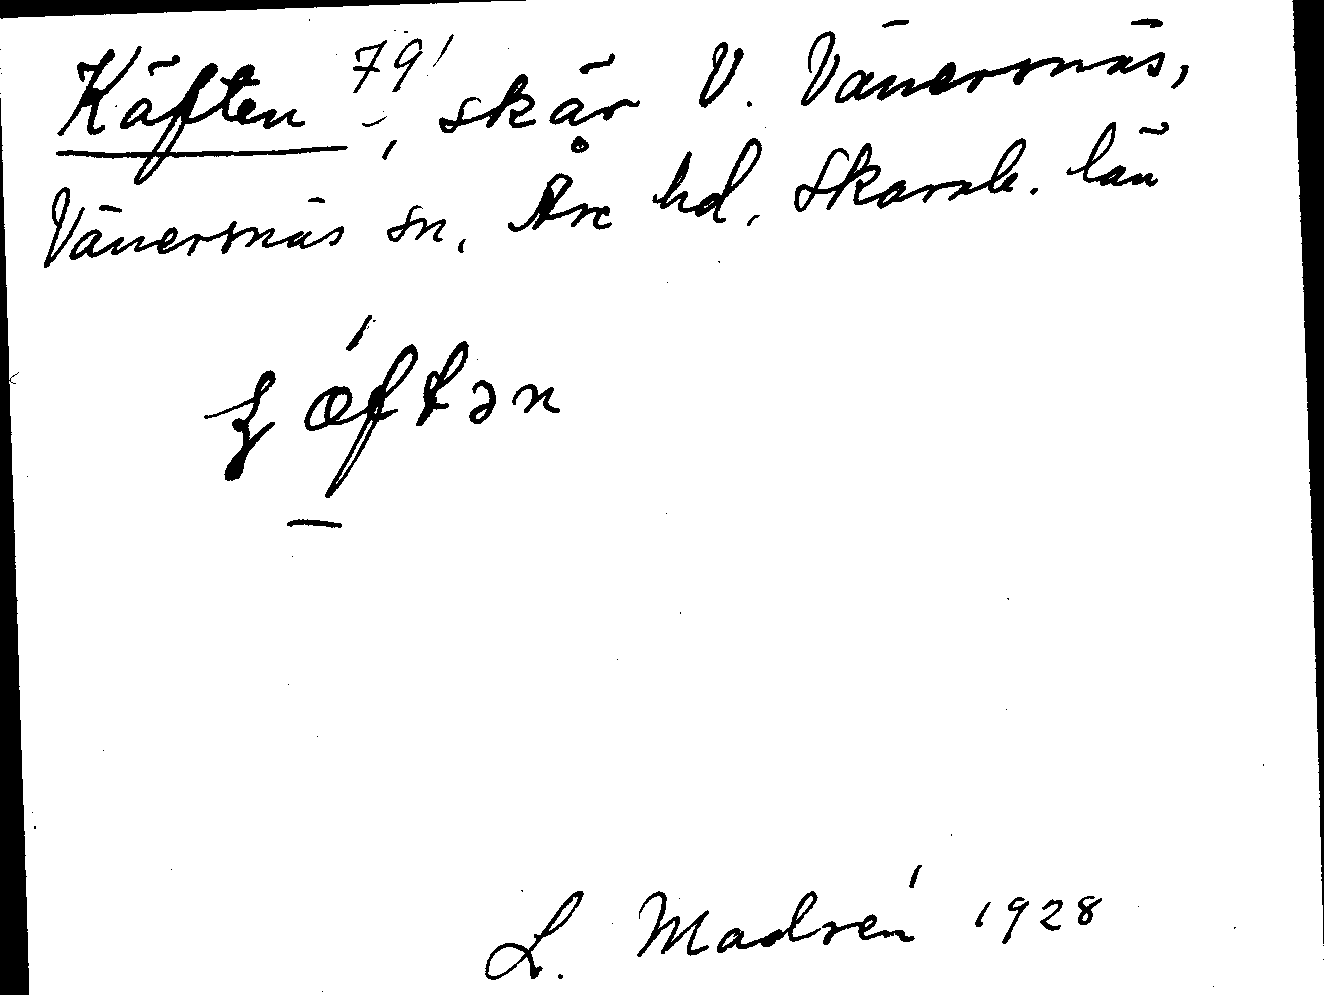 Käften 79', skär V. Vänersnäs,
Vänersnäs sn, Åse hd, Skarab. län
L. Madrén 1928